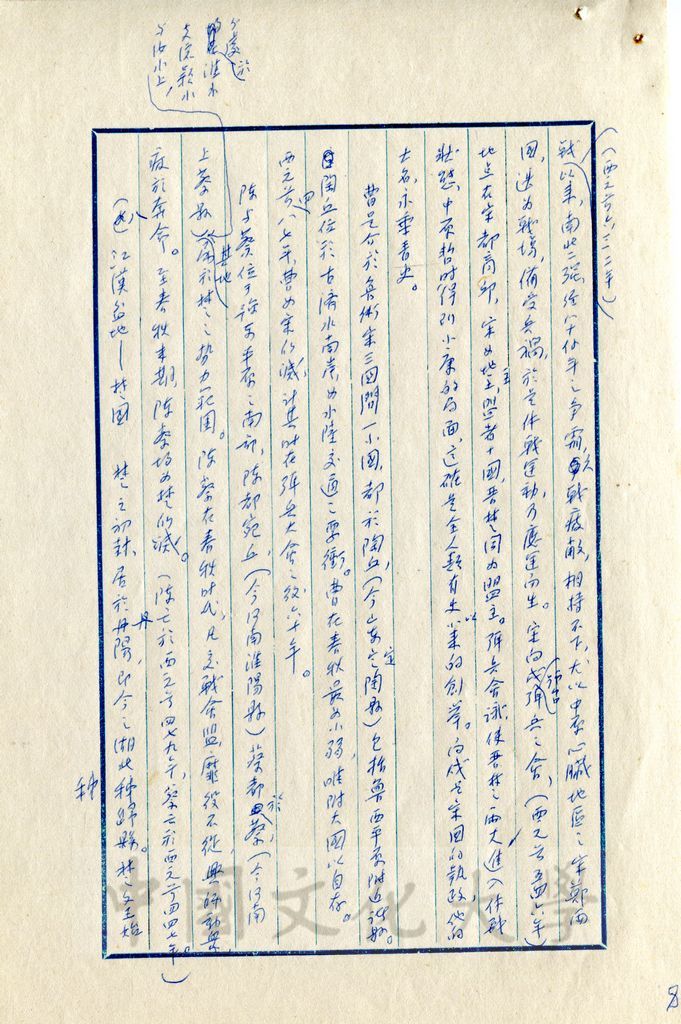 (西元前六三二年)
戰以來,南北二強經八十餘年之爭霸,久戰疲敝,相持不下,尤以中原心臟地區之宋鄭兩
國,迭為戰場,備受兵禍,於是休戰運動乃應運而生。宋向戌倡弭兵之會,(西元前五四六年)
地点在宋都商邱,宋為地主,與盟者十國,晉楚同為盟主。弭兵會議,使晉楚之兩大進入休戰
狀態,中原暫時得到小康的局面,這確是全人類有史以來的創舉。向戌是宋國的執政,他的
大名,永垂青史。
曹是介於魯衛宋三國間一小國,都於陶丘,(今山東定陶縣)包括魯西平原附近諸縣。
陶丘位於古濟水南岸,為水陸交通之要衝。曹在春秋最為小弱,唯附大國以自存。
西元前四八七年,曹為宋所滅,計其時在弭兵大會之後六十年。
陳与蔡位于淮北平原之南部,陳都宛丘,(今河南淮陽縣)蔡都於蔡,(今河南
上蔡縣)
分處於淮水
支流潁水
与汝水上,
基地
為於楚之勢力範圍。陳蔡在春秋時代,凡交戰會盟,靡役不從,興師動眾
疲於奔命。至春秋末期,陳蔡均為楚所滅。(陳亡於西元前四七九年,蔡亡於西元前四四七年。)
江漢盆地—楚國 楚之初封,居於丹陽,即今之湖北秭歸縣。楚文王始
秭
8
中國文化大學